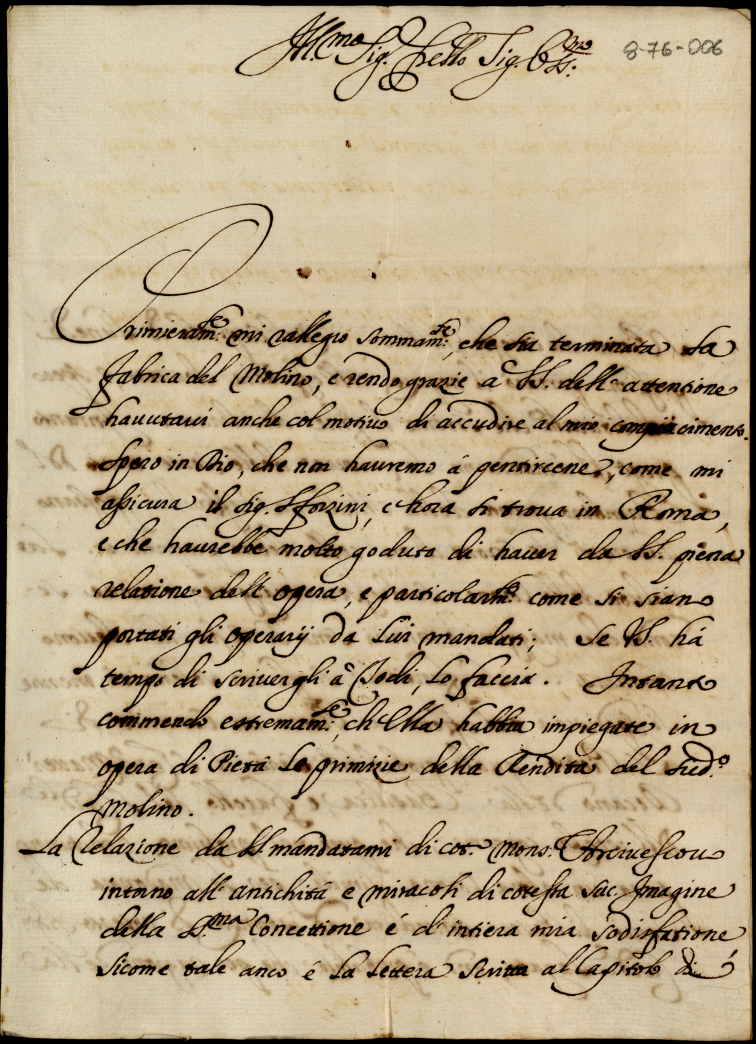 Ill.mo Sig. Sig.
8-76-006
Primieram.te mi rallegro sommam.te, che sia terminata la
fabrica del Molino, e rendo grazie a VS. dell' attentione
havutavi anche col motivo di accudire al mio compiacimento.
Spero in Dio, che non havremo á pentircene, come mi
assicura il Sig. Sforzini, c'hora si trova in Roma,
e che haurebbe molto goduto di haver da VS. piena
relatione dell' opera, e particolarm.te come si siano
portati gli operarij da lui mandati; se VS. há
tempo di scrivergli á Todi, lo faccia. Intanto
commendo estremam.te, ch'Ella habbia impiegate in
opera di Pietá le primizie della Rendita del sud.o
Molino.
La Relazione da VS. mandatami di cot.o Mons. Arcivescovo
intorno all' antichitá e miracoli di cotesta Sac. Imagine
della SS.ma Concettione é d' intiera mia sodisfatione
sicome tale anco é la lettera scritta al Capitolo di